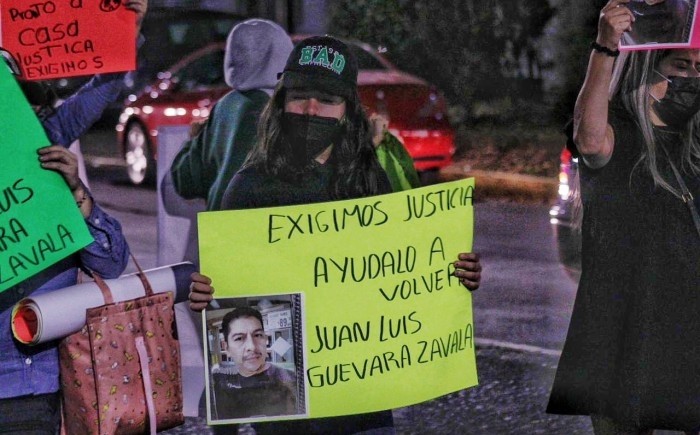 PRONTO A
CASA
JUSTICIA
EXIGIMOS
LUIS
ZAVALA
EXIGIMOS JUSTICIA
AYUDALO A
VOLVER
JUAN LUIS
GUEVARA ZAVALA